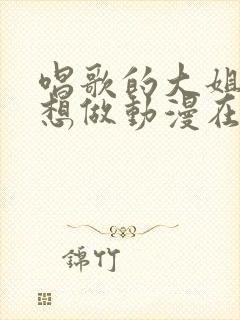 唱歌的大姐
想做動漫在
錦竹